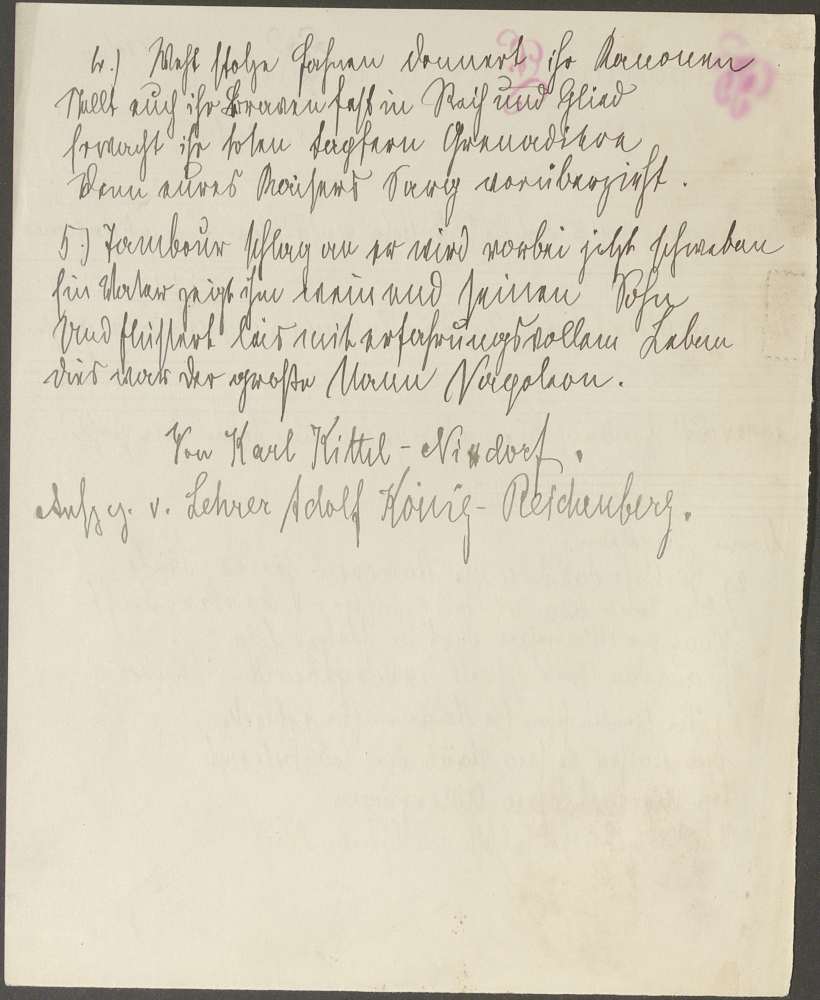 4.) Weht stolze Fahnen donnert ihr Kanonen
stellt euch ihr Braven fest in Reih und Glied
Erwacht ihr toten tapfern Grenadiere
Denn eures Kaisers Sarg vorüberzieht.
5.) Tambour schlag an er wird vorbei jetzt schweben
Ein Vater zeigt ihm und seinen Sohn
Und flüstert leis mit erfahrungsvollem Leben
dies war der große Mann Napoleon.
Von Karl Kittel - Nixdorf.
Aufg. v. Lehrer Adolf König - Reichenberg.